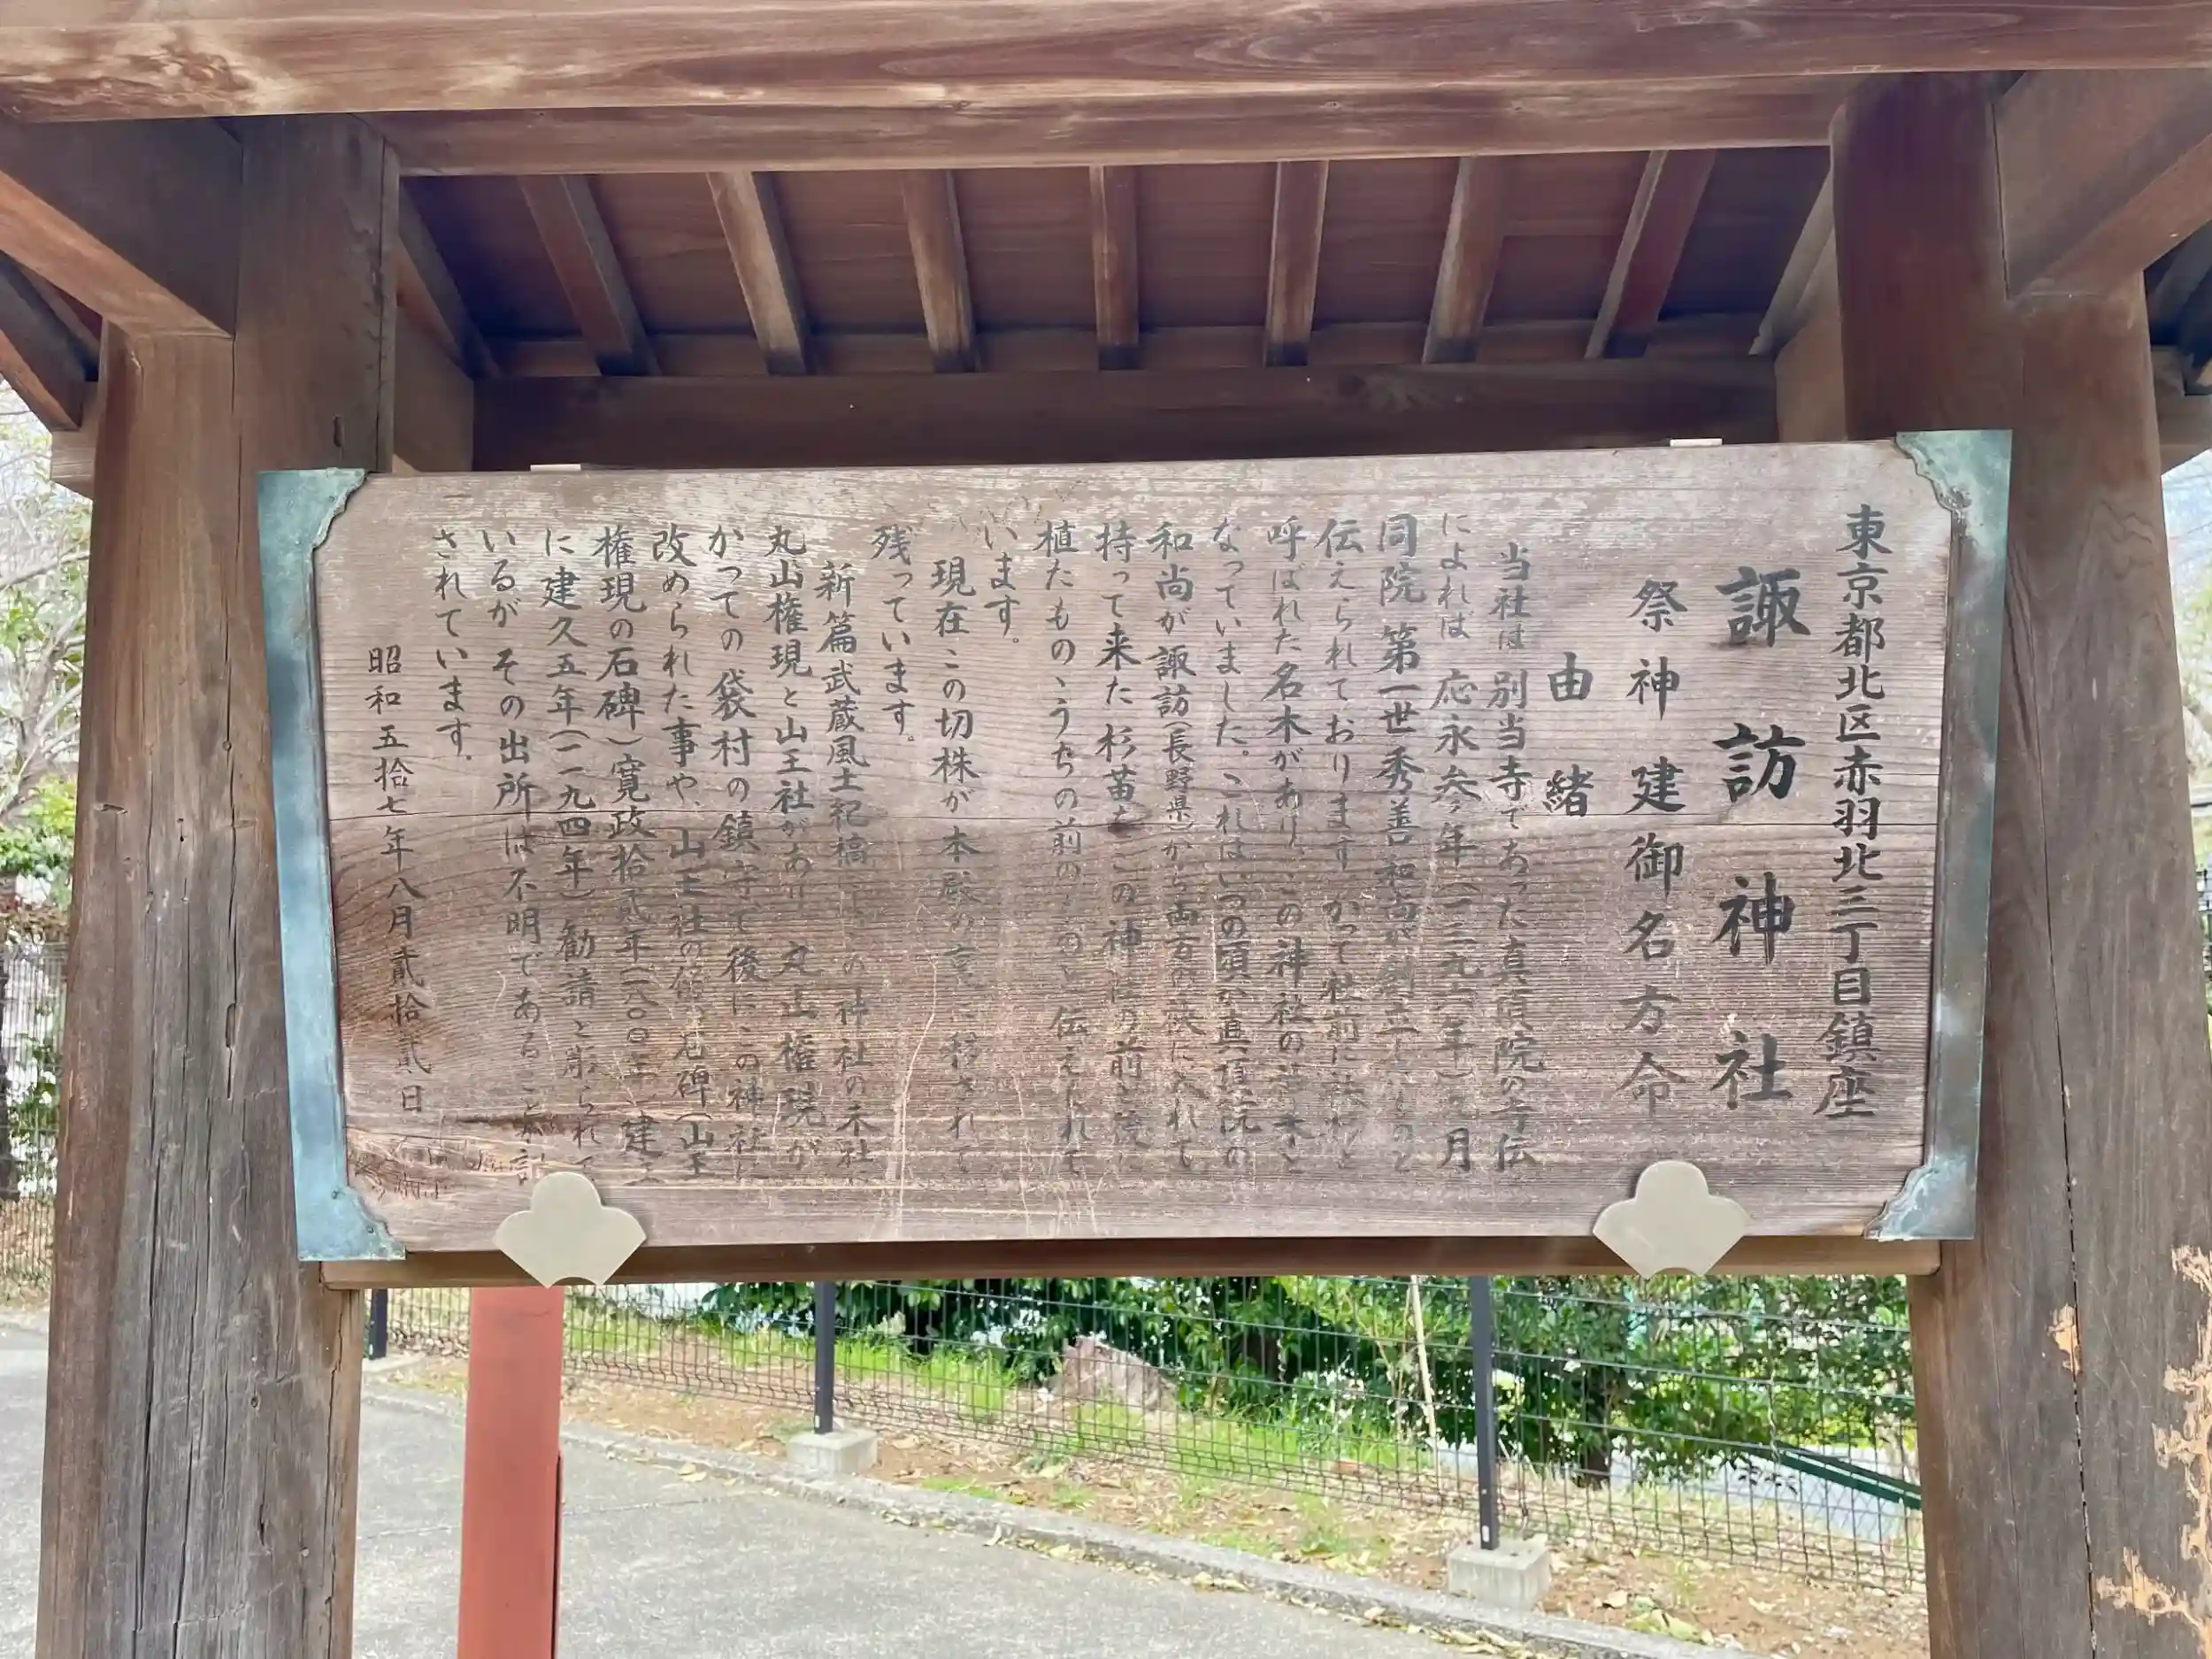 東京都北区赤羽北三丁目鎮座
諏訪神社
祭神 建御名方命
由緒
当社は 別当寺であった真頂院の寺伝
によれば 応永参年(一三九六年)月
同院 第一世 秀善和尚が創立したものと
伝えられております かつて社前に
呼ばれた名木があり、この神社の
なっていました。これはいつの頃か真頂院の
和尚が諏訪(長野県)から両方の袂に入れて
持って来た杉苗を この神社の前と後に
植たものゝうちの前のものと伝えられて
います。
現在この切株が本殿の に移されて
残っています。
新篇武蔵風土紀稿 この神社の末社
丸山権現と山王社があり 丸山権現が
かつての袋村の鎮守で後にこの神社に
改められた事や、山王社の 石碑(山王
権現の石碑)寛政拾貳年(一八〇〇年)建
に建久五年(一一九四年)勧請と彫られて
いるが その出所は不明であること
されています。
昭和五拾七年八月貳拾貳日